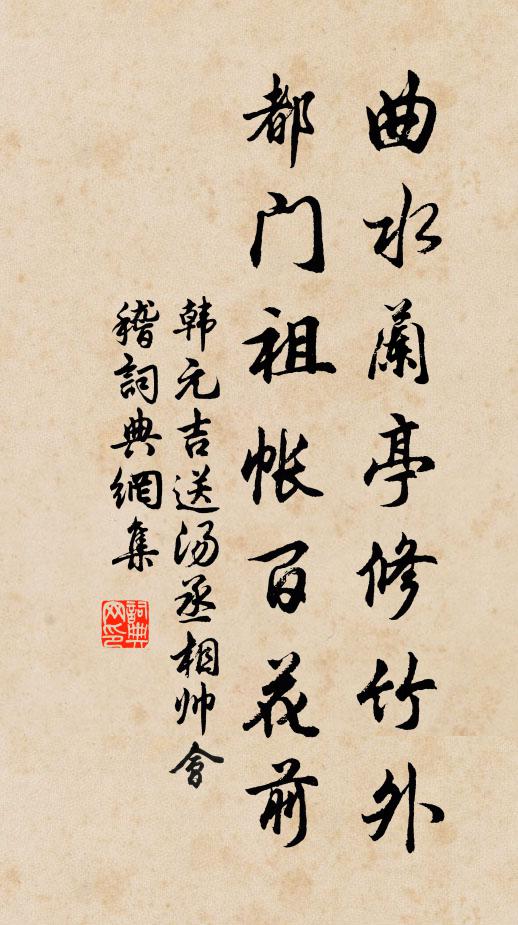 曲水蘭亭修竹外
都门祖帐百花前
韩元吉送汤丞相帅會
稽詞典網集
詞典网印